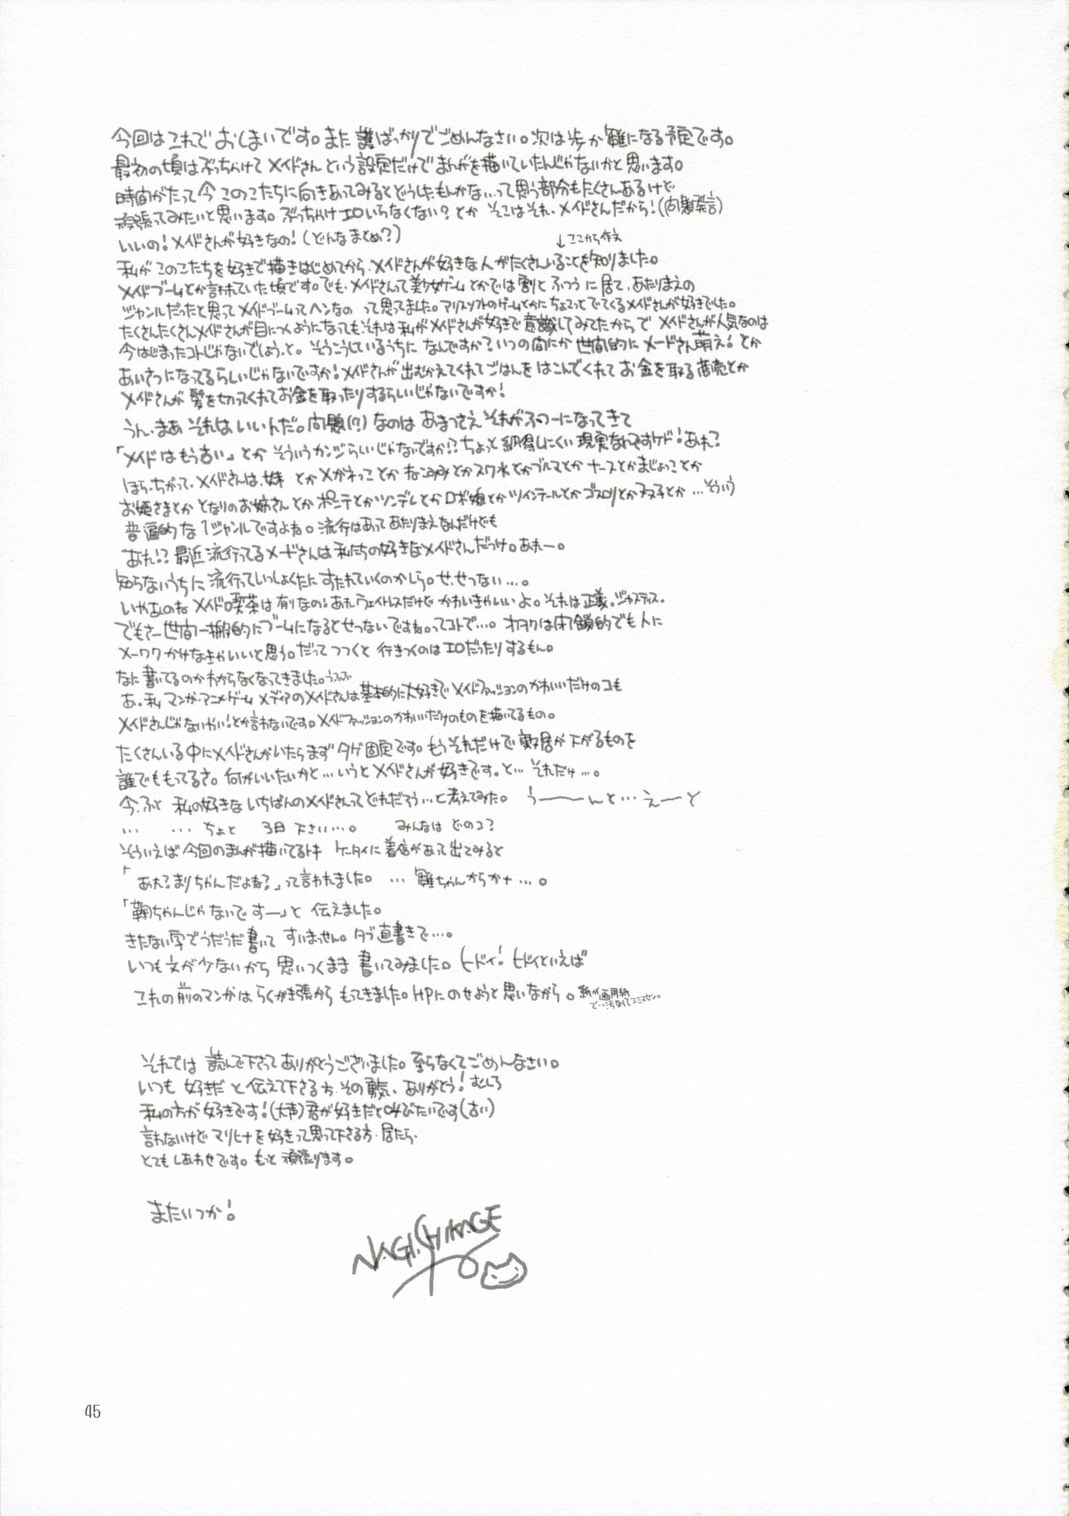 今回はこれでおしまいです。また 誰ばっかりでごめんなさい。次は歩か雛になる予定です。
最初の頃はぶっちゃけて メイドさん という設定だけでまんがを描いていたんじゃないかと思います。
時間がたって今 このこたちに向きあってみるとどうしたもんかな…って思う部分もたくさんあるけど
頑張ってみたいと思います。ぶっちゃけエロいらなくない？とか そこはそれ、メイドさんだから！(問題発言)
いいの！メイドさんが好きなの！(どんなまとめ？)
↓ここから作文
私がこのこたちを好きで描きはじめてから、メイドさんが好きな人がたくさんいることを知りました。
メイドブームとか言われていた頃です。でも、メイドさんって美少女ゲームとかでは割とふつうに居て、あたりまえの
ジャンルだったと思ってメイドブームってヘンなの って思ってました。アリスソフトのゲームとかにちょこっとでてくるメイドさんが好きでした。
たくさんたくさんメイドさんが目につくようになってもそれは私がメイドさんが好きで意識してみてたからで メイドさんが人気なのは
今はじまったコトじゃないでしょう、と。そうこうしているうちに なんですか？いつの間にか世間的に メードさん萌え！とか
あいさつになってるらしいじゃないですか！メイドさんが出むかえてくれてごはんをはこんでくれて お金を取る商売とか
メイドさんが髪を切ってくれてお金を取ったりするらしいじゃないですか！
うん、まあ それはいいんだ。問題(!?)なのは あまつさえ それがふつーになってきて
「メイドはもう古い」とか そういうカンジらしいじゃないですか!? ちょっと納得しにくい現実なんですケド！あれ？
ほら、ちがって、メイドさんは、妹 とかメガネっことか ねこみみとかスク水とかブルマとか ナースとかまじょっことか
お姫さまとか となりのお姉さんとか ポニテとかツンデレとか ロボ娘とかツインテールとかゴスロリとか とか …そういう
普遍的な 1ジャンルですよね。流行はあってあたりまえなんだけども
あれ!? 最近流行ってるメードさんは私たちの好きなメイドさんだっけ。あれー。
知らないうちに 流行っていっしょくたにすたれていくのかしら。せ、せつない…。
いやあのね メイド喫茶は有りなの！あれウェイトレスだけど かわいきゃいいよ。それは正義。ジャスティス。
でもさー世間一般的にブームになるとせつないですね。ってコトで…。オタクは閉鎖的でも人に
メーワクかけなきゃいいと思う。だって つつくと 行きつくのはエロだったりするもん。
なに書いてるのかわからなくなってきました。うふふ
あ、私 マンガ・アニメ・ゲーム メディアのメイドさんは基本的に大好きで メイドファッションのかわいいだけのコも
メイドさんじゃないやい！とか言わないです。メイドファッションのかわいいだけのものを描いてるもの。
たくさんいる中にメイドさんがいたらまずタゲ固定です。もうそれだけで敷居が下がるものを
誰でももってるさ。何がいいたいかと…いうとメイドさんが好きです。と… それだけ…。
今、ふと 私の好きな いちばんのメイドさんってどれだろう…と考えてみた。 うーーんと…えーと
… … ちょと 3日 下さい…。 みんなは どのコ？
そういえば 今回のまんが描いてるトキ ケータイに着信があって出てみると
「あれ？まりちゃんだよね？」って言われました。 … 雛ちゃんからかナ…。
「鞠ちゃんじゃないですー」と 伝えました。
きたない字でうだうだ書いて すいません。タブ直書きで…。
いつも文が少ないから 思いつくまま 書いてみました。ヒドイ！ヒドイといえば
これの前のマンガは らくがき帳から もってきました。HPにのせようと思いながら。紙が画用紙
で…汚なくてスミマセン。
それでは 読んで下さってありがとうございました。至らなくてごめんなさい。
いつも 好きだ と伝えて下さる方、その勇気、ありがとう！むしろ
私の方が好きです！(大声)君が好きだと叫びたいです(古い)
言わないけど マリヒナを好きって思って下さる方、居たら、
とても しあわせです。もっと 頑張ります。
またいつか！
NAGI.CHIKAGE
45